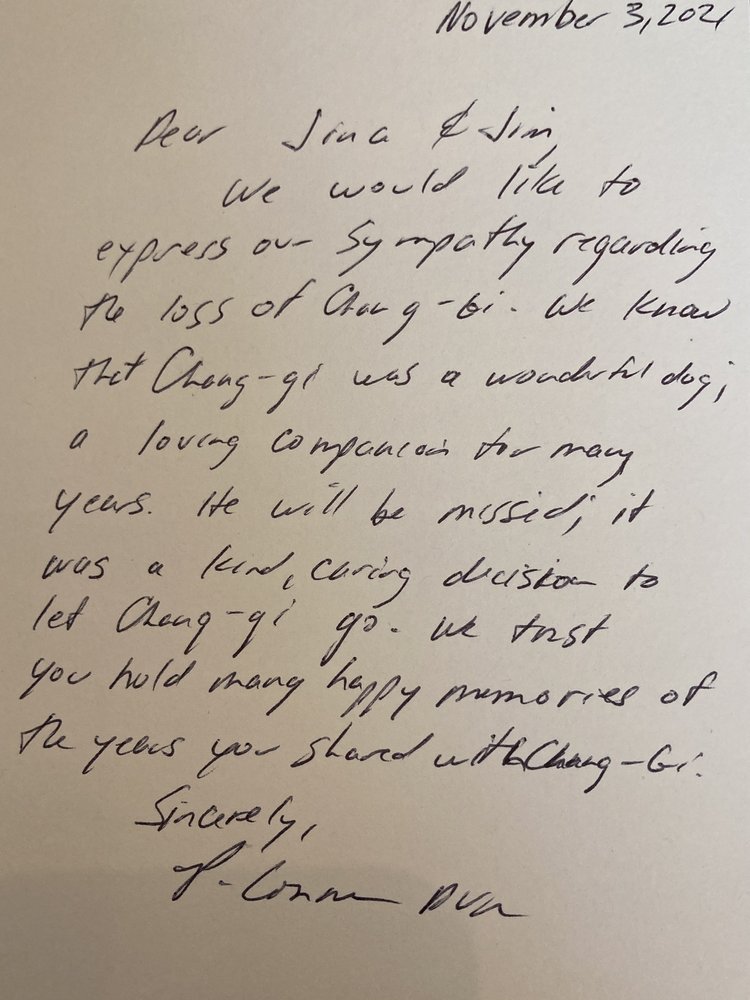 November 3, 2021
Dear Jina & Jim,
We would like to
express our Sympathy regarding
the loss of Chang-Gi. We know
that Chang-gi was a wonderful dog;
a loving companion for many
years. He will be missed; it
was a kind, caring decision to
let Chang-gi go. We trust
you hold many happy memories of
the years you shared with Chang-Gi.
Sincerely,
DVM